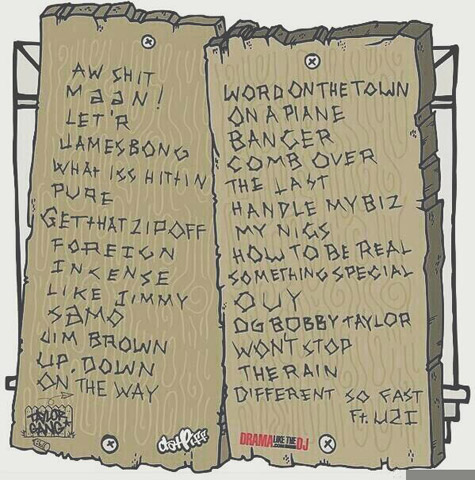 AW SHIT
MAAN!
LET'R
JAMES BONG
WHAT ISS HITTIN
PURE
GET THAT ZIP OFF
FOREIGN
INCENSE
LIKE JIMMY
SAMO
JIM BROWN
UP, DOWN
ON THE WAY
TAYLOR
GANG
DatPiff
WORD ON THE TOWN
ON A PLANE
BANGER
COMB OVER
THE LAST
HANDLE MY BIZ
MY NIGS
HOW TO BE REAL
SOMETHING SPECIAL
OUY
OG BOBBY TAYLOR
WON'T STOP
THE RAIN
DIFFERENT SO FAST
Ft. UZI
DRAMA LIKE THE DJ